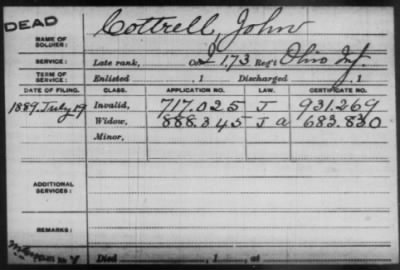 DEAD
NAME OF SOLDIER: Cottrell, John
SERVICE: Late rank, Co. I, 173 Reg't Ohio Inf.
TERM OF SERVICE: Enlisted , 1 Discharged , 1
DATE OF FILING. CLASS. APPLICATION NO. LAW. CERTIFICATE NO.
1889. July 19 Invalid, 717.025 J 931.269
Widow, 888.345 J a 683.830
Minor,
ADDITIONAL SERVICES:
REMARKS:
Died , 1 , at